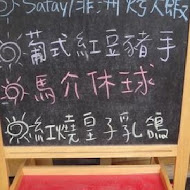 Satay/非洲 烤大蝦
葡式紅豆豬手
馬介休球
紅燒皇子乳鴿